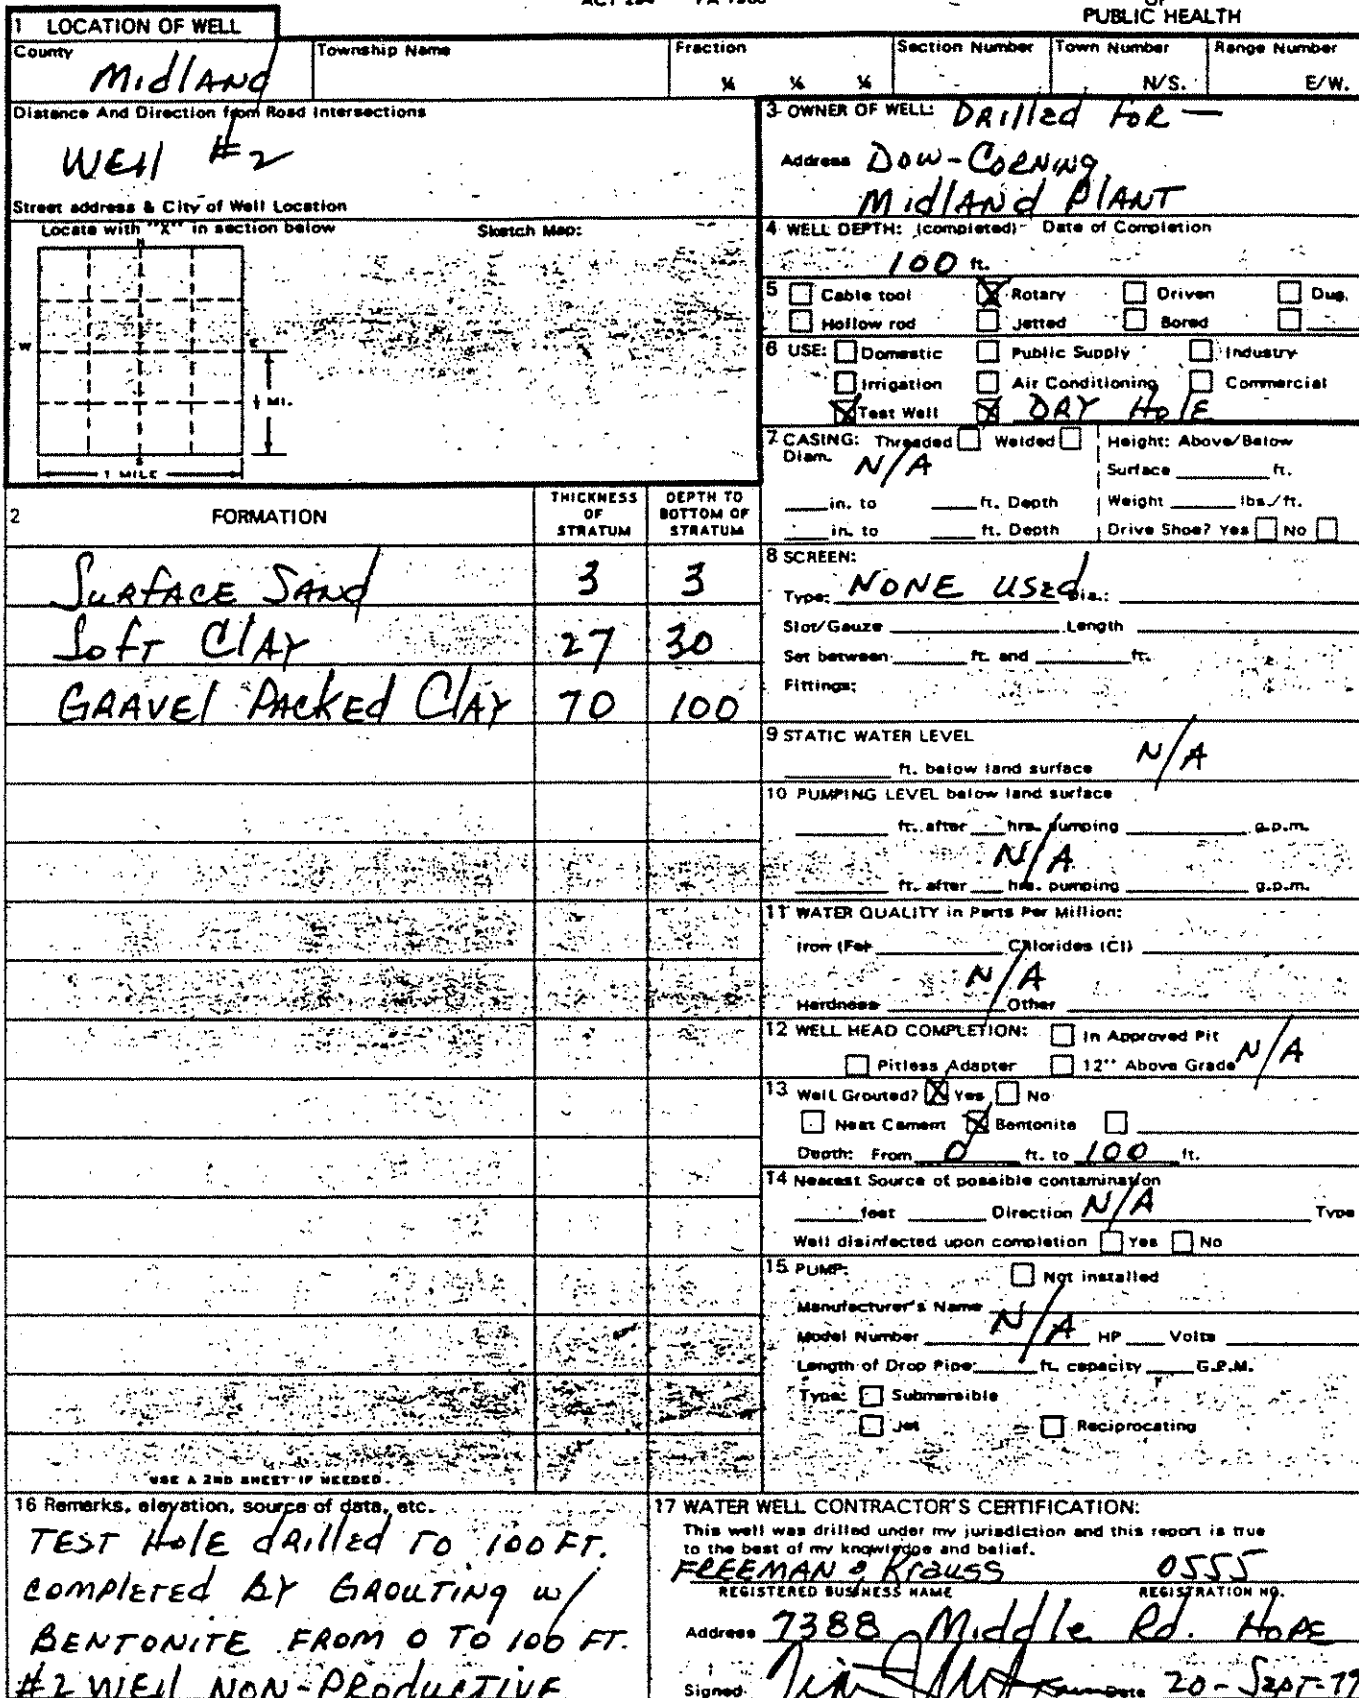 PUBLIC HEALTH
1 LOCATION OF WELL
County Midland
Township Name
Fraction
¼ ¼ ¼
Section Number
Town Number
N/S.
Range Number
E/W.
Distance And Direction from Road Intersections
Well #2
Street address & City of Well Location
Locate with "X" in section below
Sketch Map:
N
W
E
½ MI.
S
1 MILE
3 OWNER OF WELL: Drilled For —
Address Dow-Corning
Midland Plant
4 WELL DEPTH: (completed) Date of Completion
100 ft.
5 Cable tool Rotary Driven Dug
Hollow rod Jetted Bored
6 USE: Domestic Public Supply Industry
Irrigation Air Conditioning Commercial
Test Well DRY HolE
7 CASING: Threaded Welded
Diam. N/A
in. to ft. Depth
in. to ft. Depth
Height: Above/Below
Surface ft.
Weight lbs./ft.
Drive Shoe? Yes No
2 FORMATION
THICKNESS OF STRATUM
DEPTH TO BOTTOM OF STRATUM
Surface Sand 3 3
Soft Clay 27 30
Gravel Packed Clay 70 100
USE A 2ND SHEET IF NEEDED
8 SCREEN:
Type: NONE Used Dia.:
Slot/Gauze Length
Set between ft. and ft.
Fittings:
9 STATIC WATER LEVEL
ft. below land surface N/A
10 PUMPING LEVEL below land surface
ft. after hrs. pumping g.p.m.
N/A
ft. after hrs. pumping g.p.m.
11 WATER QUALITY in Parts Per Million:
Iron (Fe) Chlorides (Cl)
N/A
Hardness Other
12 WELL HEAD COMPLETION: In Approved Pit
Pitless Adapter 12" Above Grade N/A
13 Well Grouted? Yes No
Neat Cement Bentonite
Depth: From 0 ft. to 100 ft.
14 Nearest Source of possible contamination
feet Direction N/A Type
Well disinfected upon completion Yes No
15 PUMP: Not installed
Manufacturer's Name
Model Number N/A HP Volts
Length of Drop Pipe ft. capacity G.P.M.
Type: Submersible
Jet Reciprocating
16 Remarks, elevation, source of data, etc.
TEST Hole drilled TO 100 FT.
completed BY Grouting w/
BENTONITE FROM 0 TO 100 FT.
#2 Well NON-Productive
17 WATER WELL CONTRACTOR'S CERTIFICATION:
This well was drilled under my jurisdiction and this report is true
to the best of my knowledge and belief.
FREEMAN & Krauss 0555
REGISTERED BUSINESS NAME REGISTRATION NO.
Address 7388 Middle Rd. Hope
Signed Date 20-Sept-79